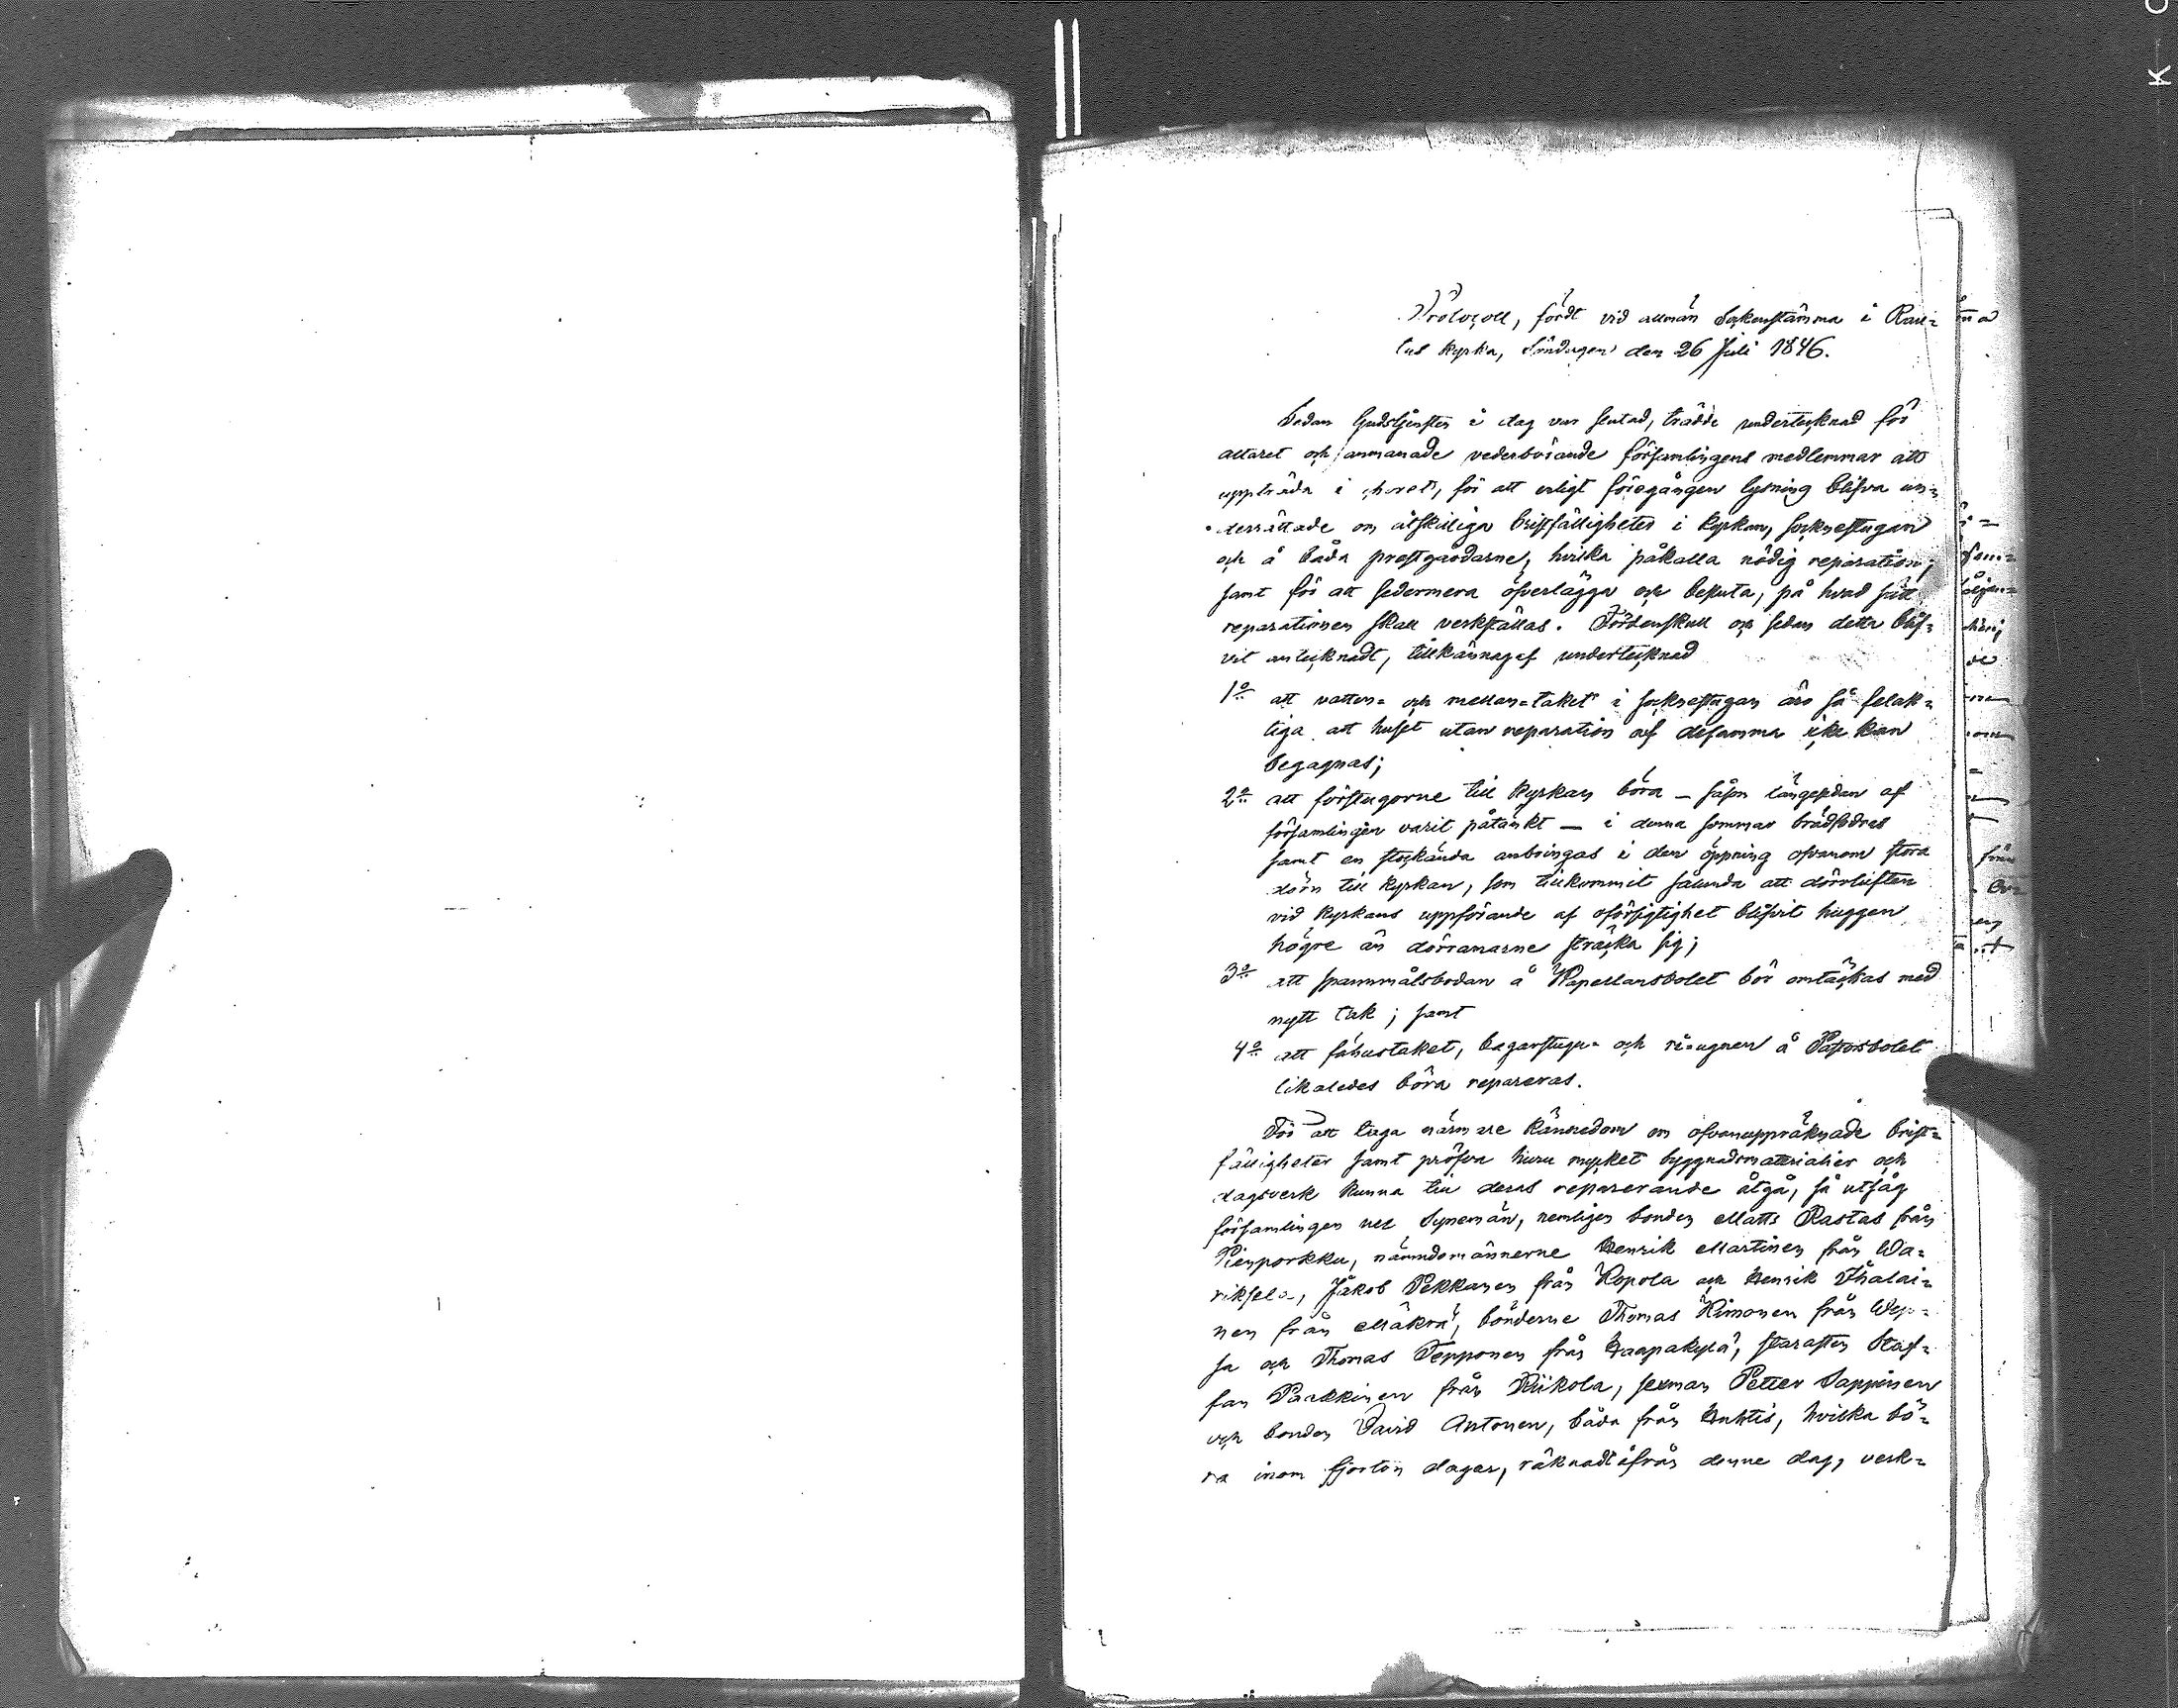 Protocoll, fördt vid allmän Sockenstämma i Rau=
tus kyrka, Söndagen den 26 Juli 1846.
Sedan Gudstjensten i dag var slutad, trädde undertecknad för
altaret och anmanade vederbörande församlingens medlemmar att
uppträda i choret, för att enligt föregången lysning blifva un=
derrättade om åtskilliga bristfälligheter i kyrkan, socknestugan
och å båda prestgårdarne, hvilka påkalla nödig reparation,
samt för att sedermera öfverlägga och besluta, på hvad sätt
reparationen skall verkställas. Fördenskull och sedan detta blif=
vit antecknadt, tillkännagaf undertecknad
1:o att vatten= och mellan=taket i socknestugan äro så felak=
tiga att huset utan reparation af desamma icke kan
begagnas;
2:o att förstugorne till kyrkan böra – såsom längesedan af
församlingen varit påtänkt – i denna sommar brädfodras
samt en stockända anbringas i den öppning ofvanom stora
dörn till kyrkan, som tillkommit sålunda att dörrluften
vid kyrkans uppförande af oförsigtighet blifvit huggen
högre än dörramarne sträcka sig;
3:o att spannmålsbodan å Kapellansbolet bör omtäckas med
nytt tak; samt
4:o att fähustaket, bagarstugu= och ri=ugnen å Pastorsbolet
likaledes böra repareras.
För att taga närmare kännedom om ofvanuppräknade brist=
fälligheter samt pröfva huru mycket byggnadsmaterialier och
dagsverk kunna till deras reparerande åtgå, så utsåg
församlingen till Synemän, nemligen bonden Matts Rastas från
Pienporkku, nämndemännerne Henrik Martinen från Wa=
riksela, Jakob Pekkanen från Kopola och Henrik Ihalai=
nen från Mäkrä, bönderne Thomas Kimonen från Wep=
sa och Thomas Tepponen från Haapakylä, starasten Staf=
fan Parkkinen från Riikola, sexman Petter Sappinen
och bonden David Antonen, båda från Huhtis, hvilka bö=
ra inom fjorton dagar, räknadt ifrån denne dag, verk=